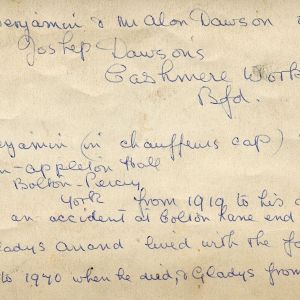 enjamin & Mr Alan Dawson
Joshep Dawson's
Cashmere Work
Bfd.
enjamin (in chauffeurs cap)
n-appleton Hall
Bolton-Percy
York from 1919 to his d
an accident at Colton Lane end
ladys Anand lived with the fa
to 1970 when he died, & Gladys from